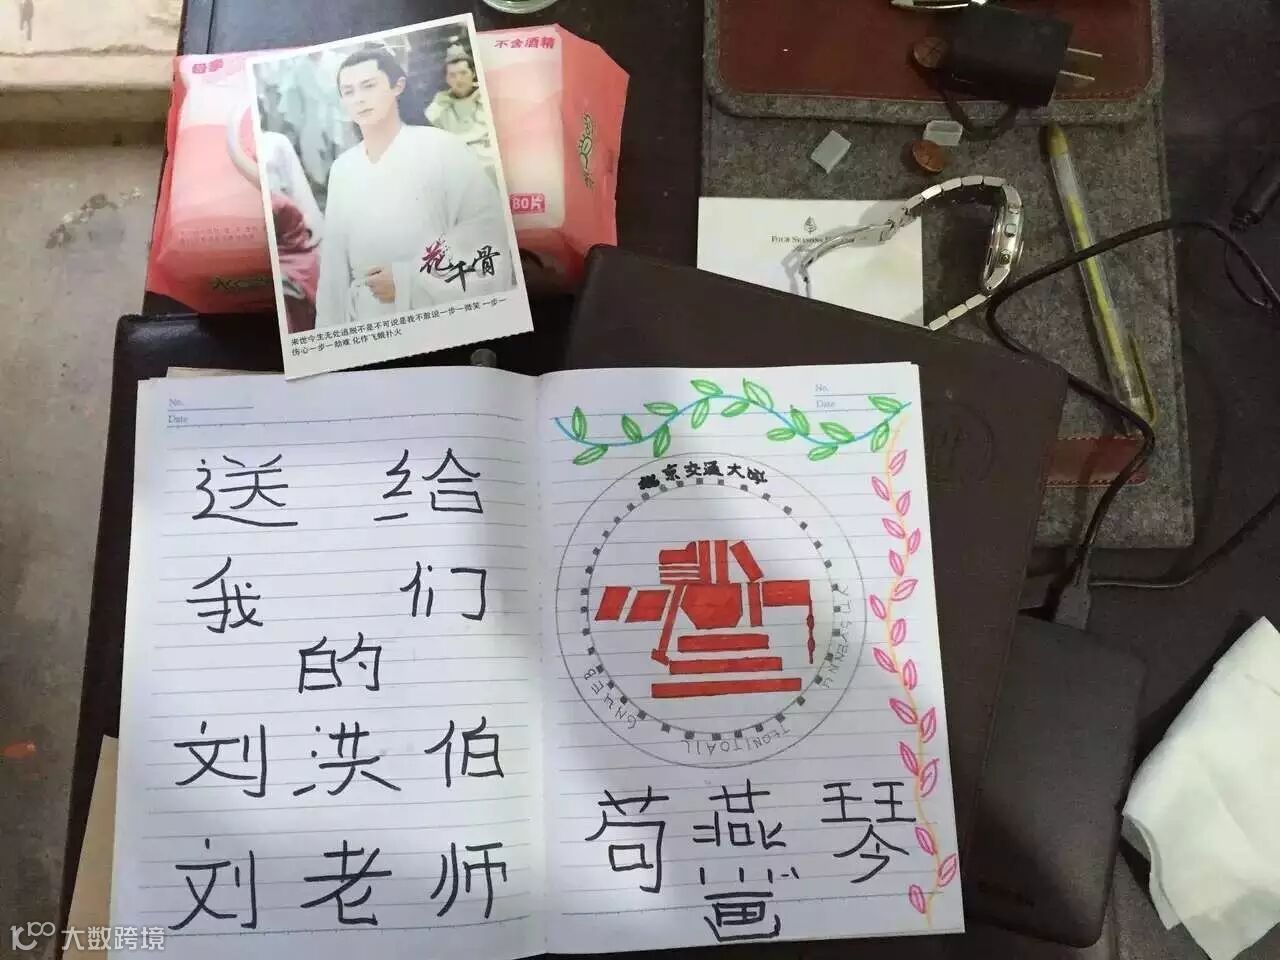 不含酒精
80片
花千骨
来世今生无处逃脱不是不可说是我不敢说一步一微笑 一步一
伤心一步一劫难 化作飞蛾扑火
No.
Date
送给
我们
的
刘洪伯
刘老师
No.
Date
北京交通大学
苟燕琴
画
大数跨境